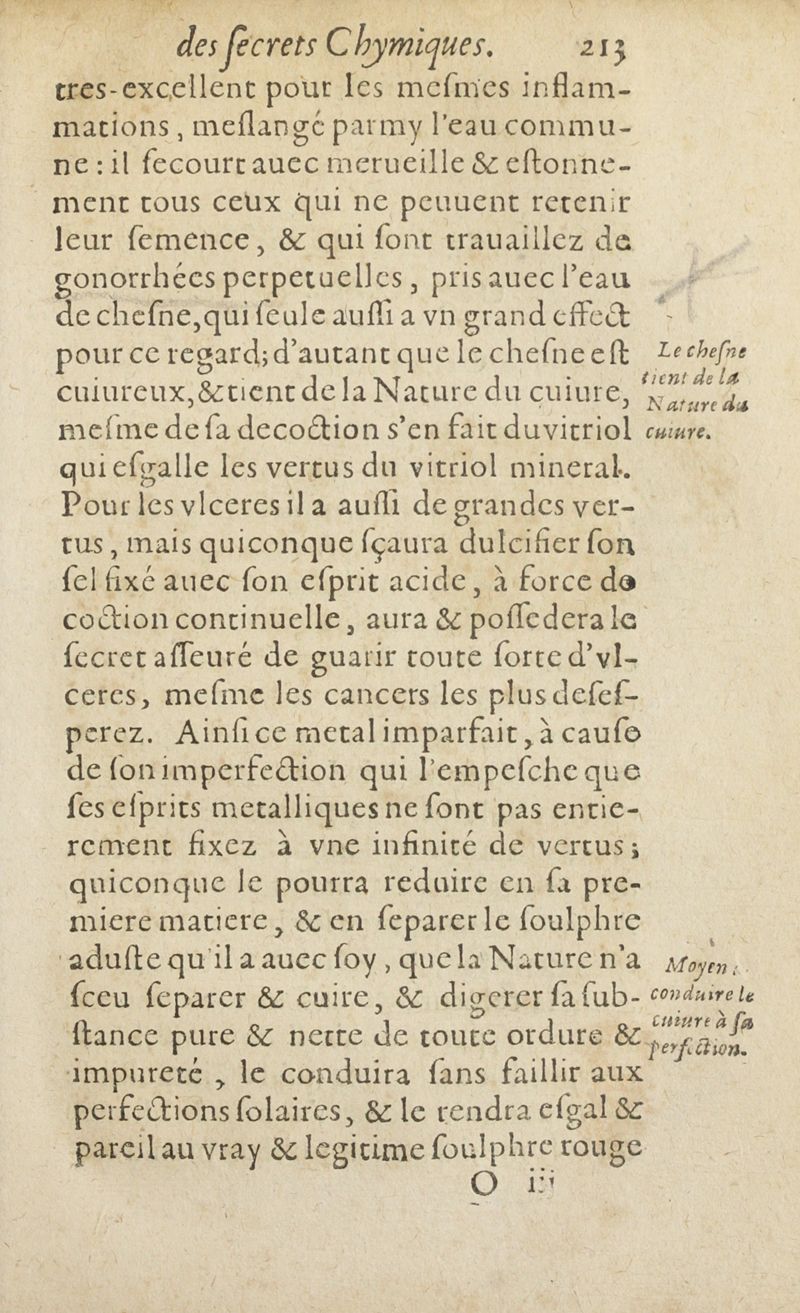 des ſecrets Chymiques. 213
tres-excellent pour les meſmes inflam-
mations, meſlangé parmy l'eau commu-
ne : il ſecourt auec merueille & eſtonne-
ment tous ceux qui ne peuuent retenir
leur ſemence, & qui ſont trauaillez de
gonorrhées perpetuelles, pris auec l'eau
de cheſne, qui ſeule auſſi a vn grand effect
pour ce regard; d'autant que le cheſne eſt
cuiureux, & tient de la Nature du cuiure,
meſme de ſa decoction s'en fait du vitriol
qui eſgalle les vertus du vitriol mineral.
Pour les vlceres il a auſſi de grandes ver-
tus, mais quiconque ſçaura dulcifier ſon
ſel fixé auec ſon eſprit acide, à force de
coction continuelle, aura & poſſedera le
ſecret aſſeuré de guarir toute ſorte d'vl-
ceres, meſme les cancers les plus deſeſ-
perez. Ainſi ce metal imparfait, à cauſe
de ſon imperfection qui l'empeſche que
ſes eſprits metalliques ne ſont pas entie-
rement fixez à vne infinité de vertus;
quiconque le pourra reduire en ſa pre-
miere matiere, & en ſeparer le ſoulphre
aduſte qu'il a auec ſoy, que la Nature n'a
ſceu ſeparer & cuire, & digerer ſa ſub-
ſtance pure & nette de toute ordure &
impureté, le conduira ſans faillir aux
perfections ſolaires, & le rendra eſgal &
pareil au vray & legitime ſoulphre rouge
O iij
Le cheſne
tient de la
Nature du
cuiure.
Moyen
conduire le
cuiure à ſa
perfection.